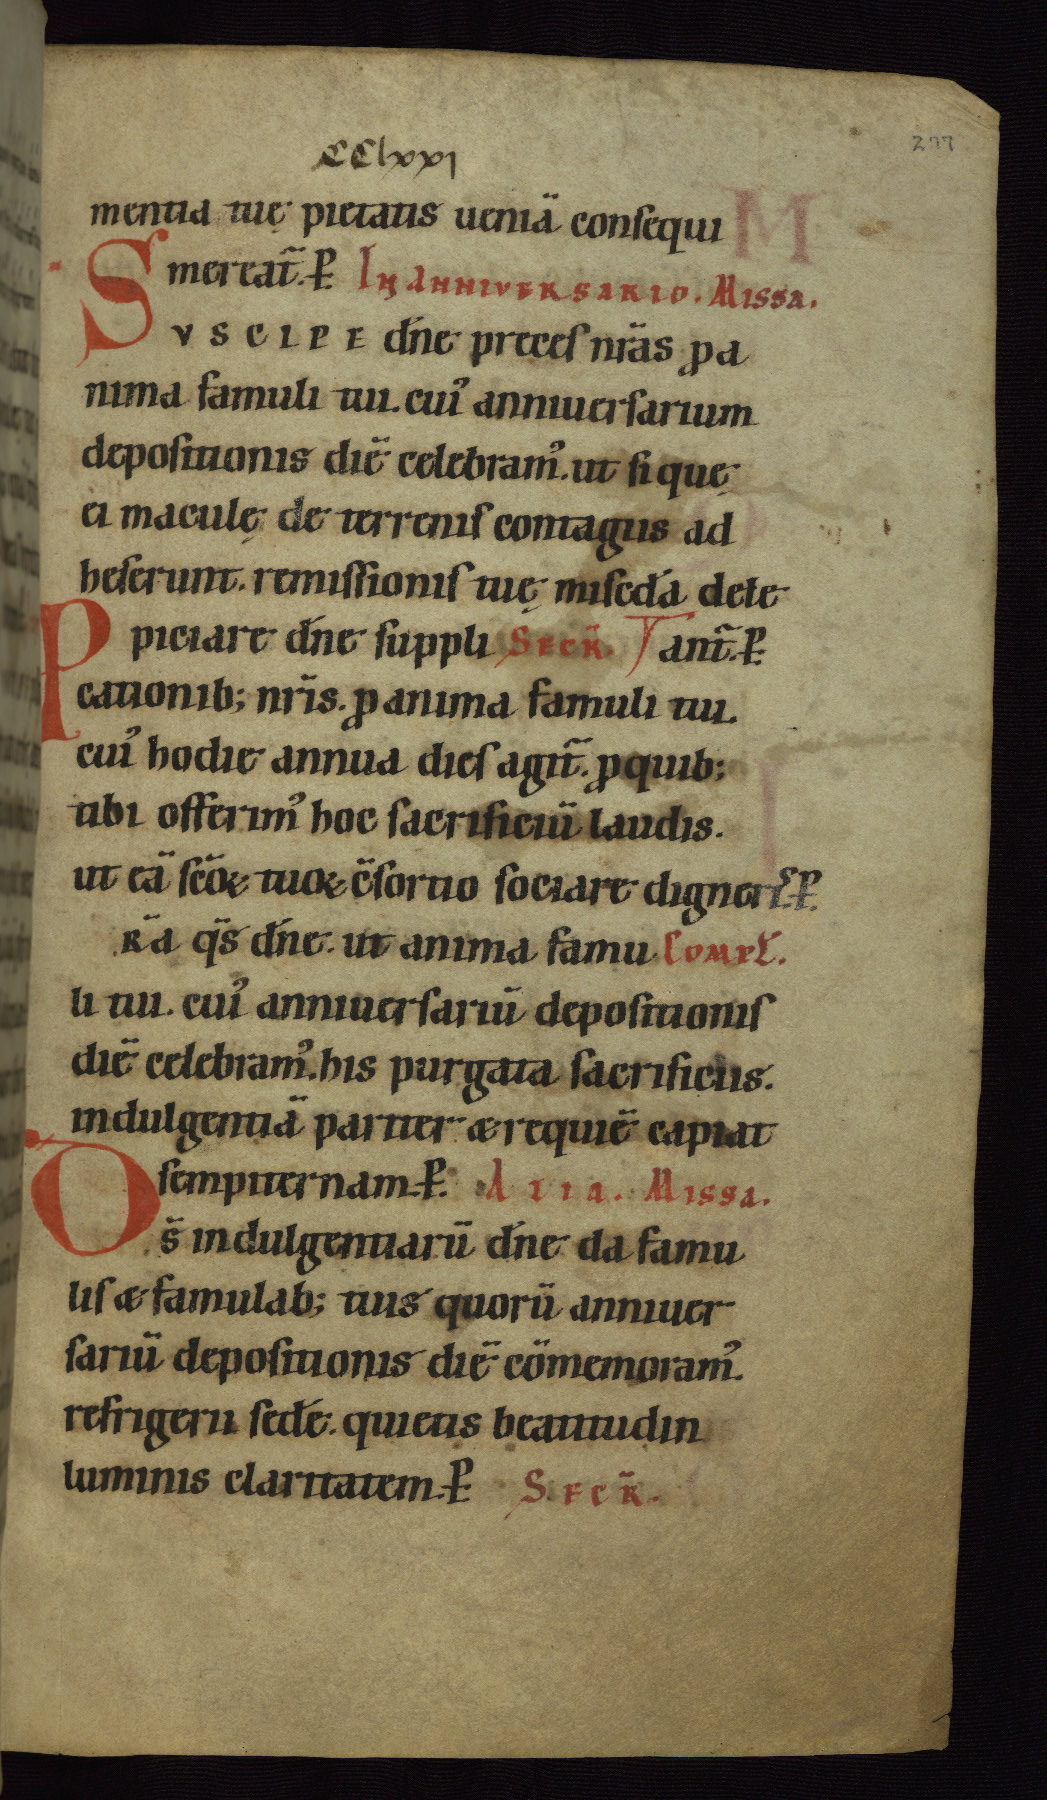 CClxxi
277
mentia tuę pietatis ueniā consequi
mereat̃. P̃. In anniversario. Missa.
SVSCIPE dñe preces nr̃as ꝓ a
nima famuli tui. cui᾽ anniuersarium
depositionis diē celebram᾽. ut si quę
ei maculę de terrenis contagiis ad
heserunt. remissionis tuę misedã dele
Ppiciare dñe suppli Secr̃. Tant̃. P̃
cationib; nr̃is. ꝓ anima famuli tui.
cui᾽ hodie annua dies agit̃. ꝓ quib;
tibi offerim᾽ hoc sacrificiū laudis.
ut eā sc̃oꝝ tuoꝝ c̃sortio sociare digneris. P̃.
Pr̃a q̃s dñe. ut anima famu Compl̃.
li tui. cui᾽ anniuersariū depositionis
diē celebram᾽. his purgata sacrificiis.
indulgentiā pariter & requiē capiat
sempiternam. P̃. Alia. Missa.
Ds̃ indulgentiarū dñe da famu
lis & famulab; tuis quorū anniuer
sariū depositionis diē cōmemoram᾽.
refrigerii sedē. quietis beatitudin
luminis claritatem. P̃ Secr̃.